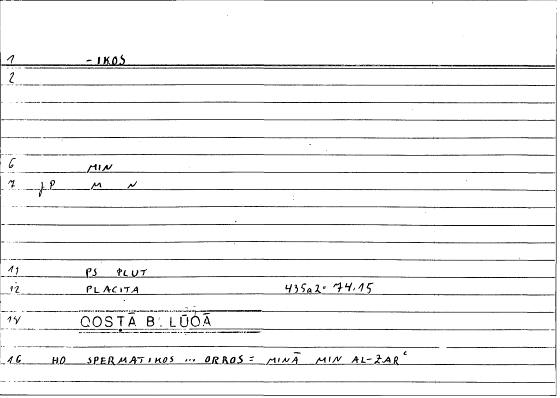 1 -IKOS
2
6 MIN
7 jP M N
11 PS PLUT
12 PLACITA 435a2 = 74.15
14 QOSṬĀ B. LŪQĀ
16 HO SPERMATIKOS ... ORROS = MINĀ MIN AL-ZARʿ